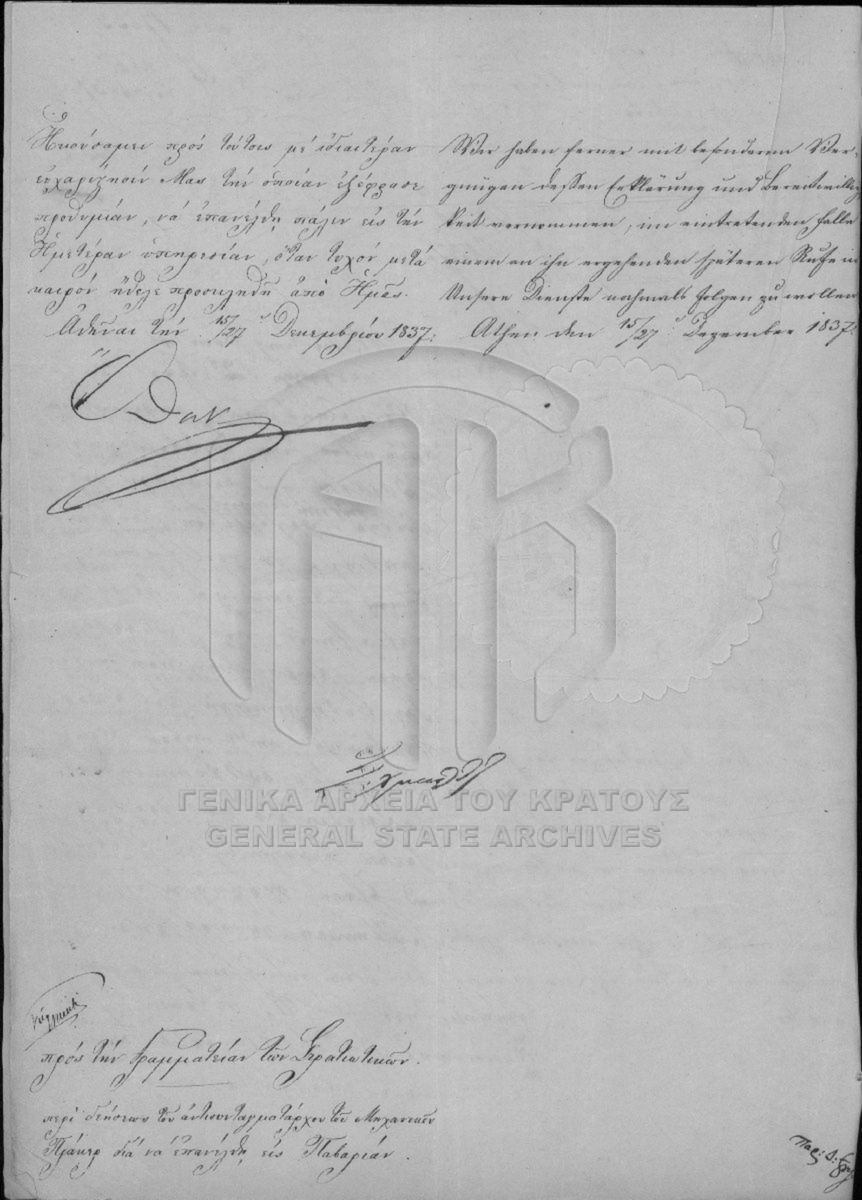 Ἠκούσαμεν πρὸς τούτοις μὲ ἰδιαιτέραν
εὐχαρίστησίν Μας τὴν ὁποίαν ἐξέφρασε
προθυμίαν, νὰ ἐπανέλθῃ πάλιν εἰς τὴν
Ἡμετέραν ὑπηρεσίαν, ὅταν τυχὸν μετὰ
καιρὸν ἤθελε προσκληθῆ ἀπὸ Ἡμᾶς.
Ἀθῆναι τὴν 15/27 Δεκεμβρίου 1837.
Wir haben ferner mit besonderem Ver-
gnügen dessen Erklärung und Bereitwillig
keit vernommen, im eintretenden Falle
einem an ihn ergehenden späteren Rufe in
Unsere Dienste nochmals folgen zu wollen
Athen den 15/27 Dezember 1837.
Ὄθων
ΓΕΝΙΚΑ ΑΡΧΕΙΑ ΤΟΥ ΚΡΑΤΟΥΣ
GENERAL STATE ARCHIVES
πρὸς τὴν Γραμματείαν τῶν Στρατιωτικῶν.
περὶ δεήσεως τοῦ ἀντισυνταγματάρχου τοῦ Μηχανικοῦ
διὰ νὰ ἐπανέλθῃ εἰς Παβαρίαν.